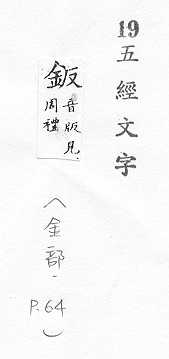 19五經文字
鈑音版見
周禮
(金部-
P.64)